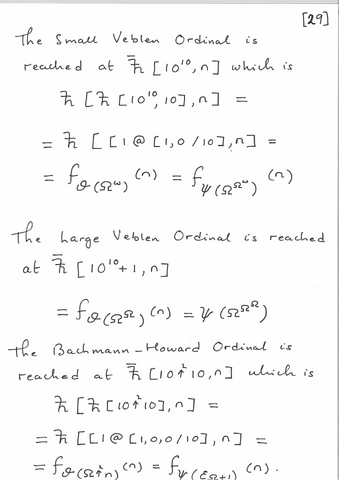 [29]
The Small Veblen Ordinal is
reached at ħ̄ [10¹⁰,n] which is
ħ [ħ [10¹⁰,10],n] =
= ħ [[1@[1,0/10],n] =
= f_ϑ(Ω^ω) (n) = f_ψ(Ω^Ω^ω) (n)
The Large Veblen Ordinal is reached
at ħ̄ [10¹⁰+1,n]
= f_ϑ(Ω^Ω) (n) = ψ(Ω^Ω^Ω)
The Bachmann-Howard Ordinal is
reached at ħ̄ [10↑²10,n] which is
ħ [ħ [10↑²10],n] =
= ħ [[1@[1,0,0/10],n] =
= f_ϑ(Ω↑²n) (n) = f_ψ(εΩ+1) (n).